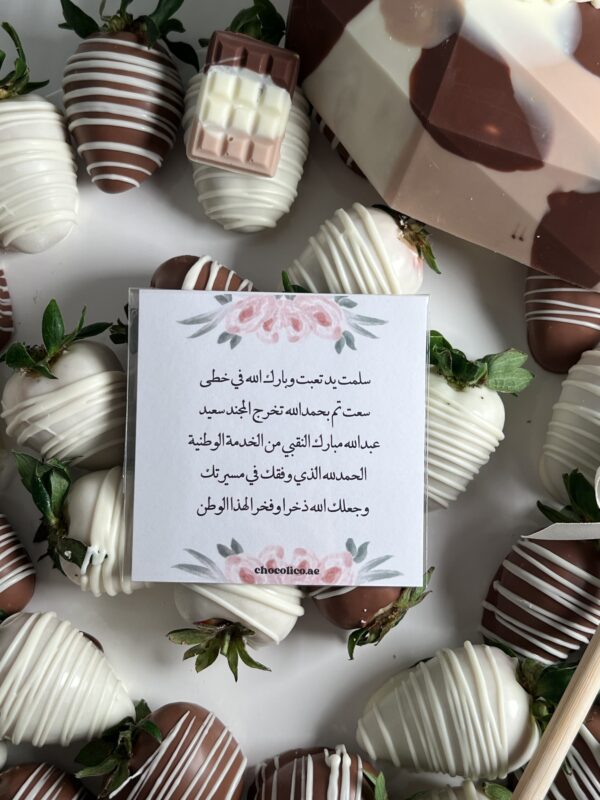 سلمت يد تعبت وبارك الله في خطى
سعت تم بحمدالله تخرج المجند سعيد
عبدالله مبارك النقبي من الخدمة الوطنية
الحمدلله الذي وفقك في مسيرتك
وجعلك الله ذخرا وفخرا لهذا الوطن
chocolico.ae